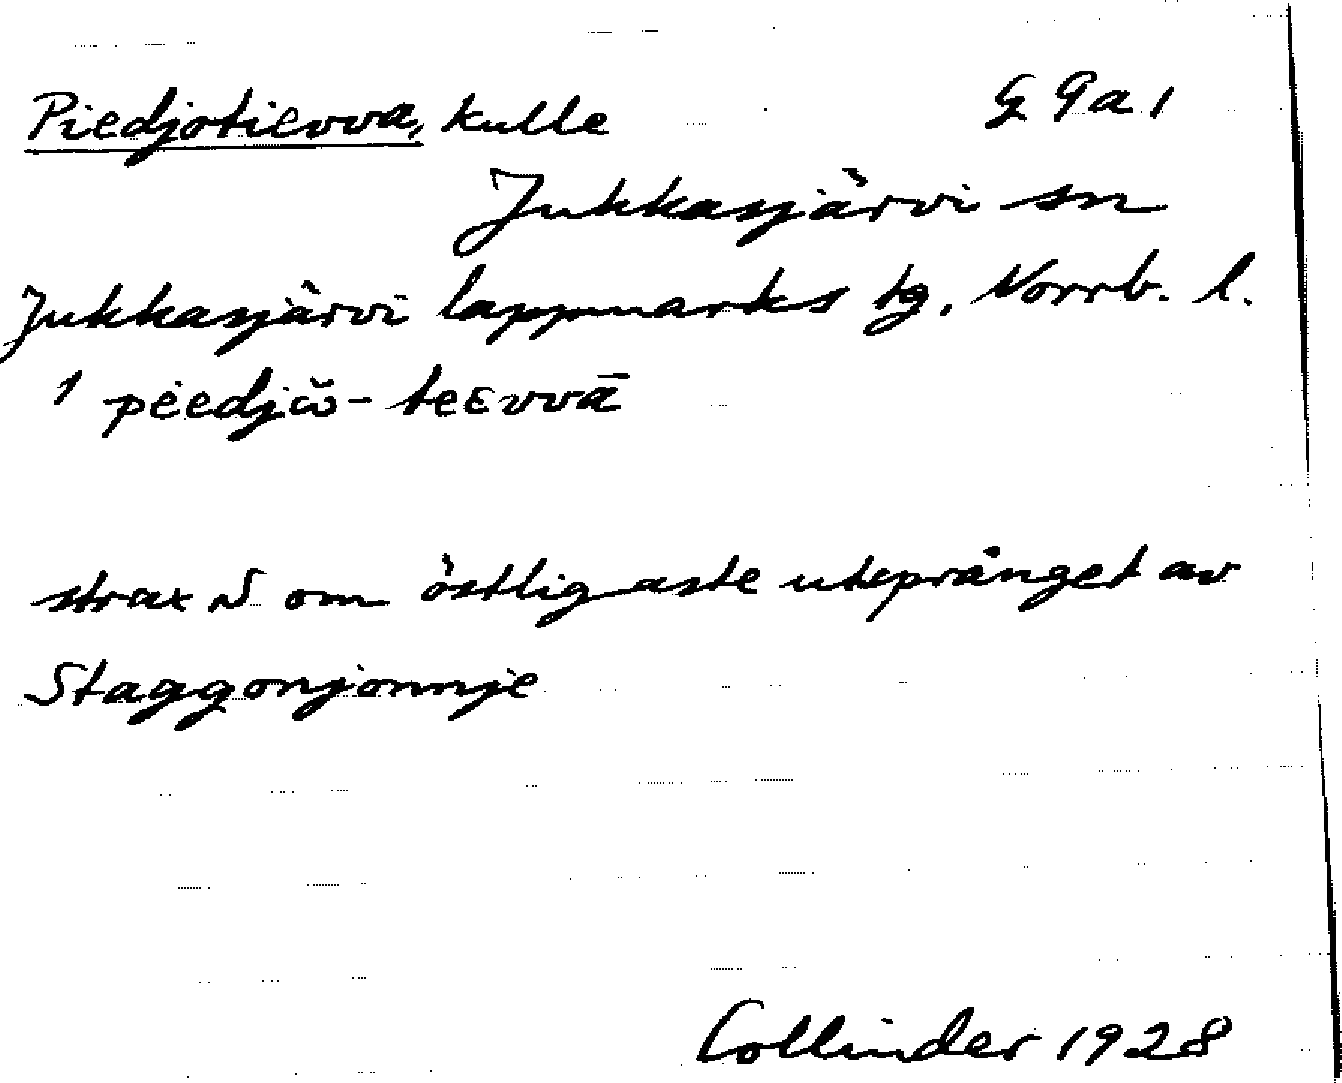 Piedjotievva, kulle G 9 a 1
Jukkasjärvi sn
Jukkasjärvi lappmarks tg, Norrb. l.
1 pėedjŏ̤- teεvvā
strax N om östligaste utsprånget av
Staggonjonnje
Collinder 1928